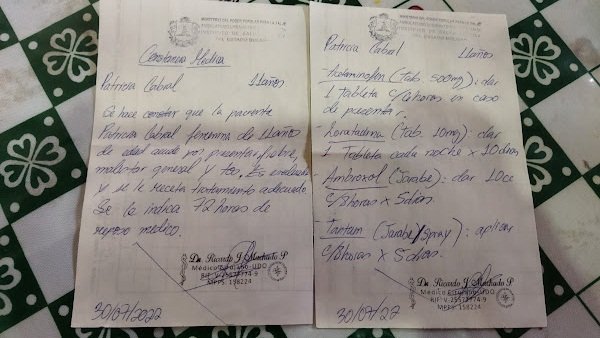 MINISTERIO DEL PODER POPULAR PARA LA SALUD
INSTITUTO DE SALUD
Constancia Medica
Patricia Cabral 11años
Se hace constar que la paciente
Patricia Cabral femenina de 11años
de edad acude por presentar fiebre,
malestar general y tos. Es evaluada
y se le receta tratamiento adecuado.
Se la indica 72 horas de
reposo medico.
Dr. Ricardo J. Machado P.
Médico Cirujano-UDO
MPPS: 158224
30/07/2022
MINISTERIO DEL PODER POPULAR PARA LA SALUD
INSTITUTO DE SALUD
Patricia Cabral 11años
- Acetaminofen (Tab 500mg): dar
1 tableta c/8horas in caso
de presentar.
- Loratadina (Tab. 10mg): dar
1 Tableta cada noche x 10dias
- Ambroxol (Jarabe): dar 10cc
c/8horas x 5dias.
- Tantum (Jarabe/Spray): aplicar
c/8horas x 5dias.
Dr. Ricardo J. Machado P.
Médico Cirujano-UDO
MPPS: 158224
30/07/22